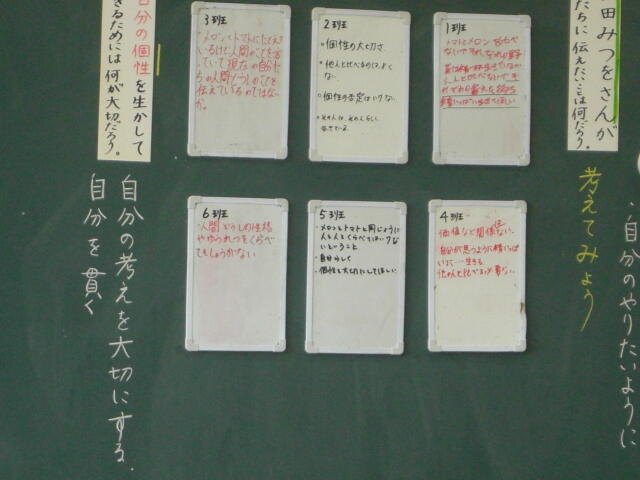 田みつをさんが
たちに伝えたいことは何だろう。
考えてみよう
・自分のやりたいように
1班
トマトとメロン
2班
・個性の大切さ
・他人と比べるのはよく
ない
・個性の否定はいけない
3班
・メロンとトマトにたとえて
いるけど人間のことを言
っていて現在の自分た
ちの人間どうしのことを
伝えているのではない
か。
4班
価値など関係ない。
自分が思うように精いっぱ
い 生きる
5班
・メロンとトマトと同じように
人と人とくらべてはいけな
いということ
・自分らしく
・個性を大切にしてほしい
6班
・人間どうしの性格
やゆうれつをくらべ
てもしょうがない
自分の個性を生かして
きるためには何が大切だろう。
自分の考えを大切にする。
自分を貫く